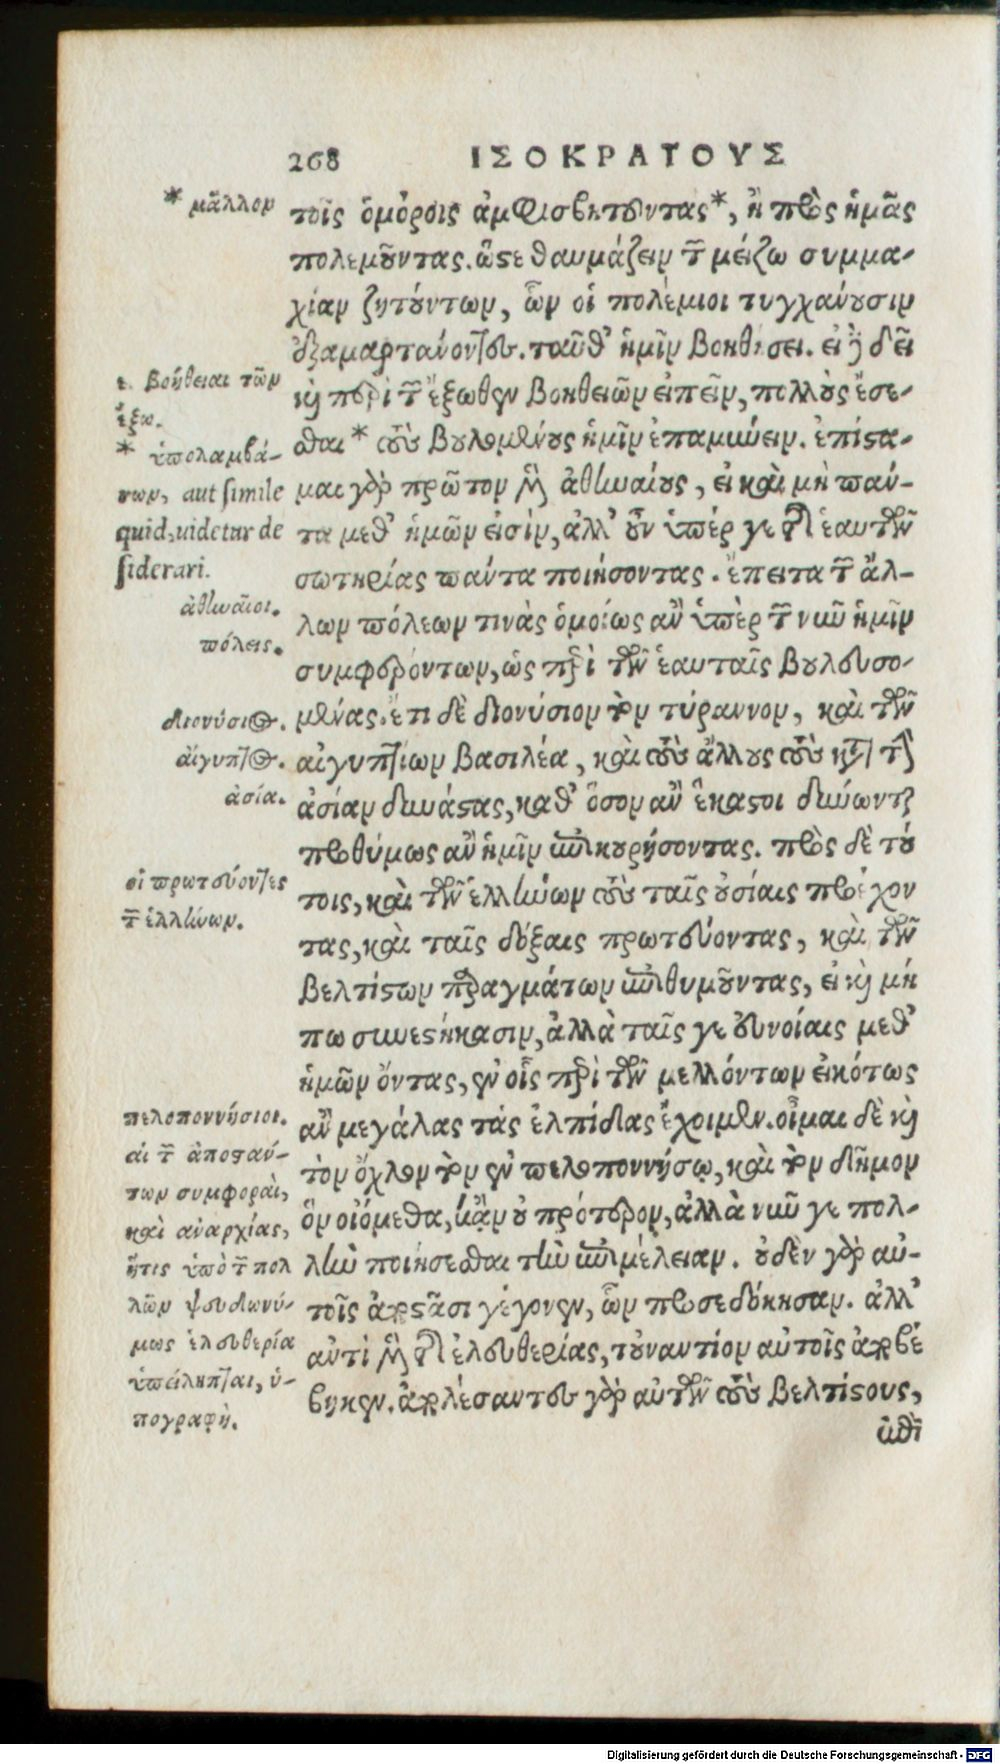 268 ΙΣΟΚΡΑΤΟΥΣ
* μᾶλλον
τοῖς ὁμόροις ἀμφισβητοῦντας*, ἢ πρὸς ἡμᾶς
πολεμοῦντας. ὥστε θαυμάζειν τ̃ μείζω συμμα-
χίαν ζητούντων, ὧν οἱ πολέμιοι τυγχάνουσιν
ἐξαμαρτάνοντες. ταῦθ' ἡμῖν βοηθήσει. εἰ δὲ δεῖ
καὶ περὶ τ̃ ἔξωθεν βοηθειῶν εἰπεῖν, πολλοὺς ἔσε-
σθαι* τοὺς βουλομένους ἡμῖν ἐπαμύνειν. ἐπίστα-
μαι γὰρ πρῶτον μὲν ἀθηναίους, εἰ καὶ μὴ πάν-
τα μεθ' ἡμῶν εἰσὶν, ἀλλ' οὖν ὑπέρ γε τῆς ἑαυτῶν
σωτηρίας πάντα ποιήσοντας. ἔπειτα τ̃ ἄλ-
λων πόλεων τινὰς ὁμοίως ἂν ὑπὲρ τ̃ νῦν ἡμῖν
συμφερόντων, ὡς περὶ τῶν ἑαυταῖς βουλευσο-
μένας. ἔτι δὲ διονύσιον τὸν τύραννον, καὶ τῶν
αἰγυπτίων βασιλέα, καὶ τοὺς ἄλλους τοὺς κατὰ τὴν
ἀσίαν δυνάστας, καθ' ὅσον ἂν ἕκαστοι δύνωνται
προθύμως ἂν ἡμῖν ἐπικουρήσοντας. πρὸς δὲ τού
τοις, καὶ τῶν ἑλλήνων τοὺς ταῖς οὐσίαις προέχον
τας, καὶ ταῖς δόξαις πρωτεύοντας, καὶ τῶν
βελτίστων πραγμάτων ἐπιθυμοῦντας, εἰ καὶ μή
πω συνεστήκασιν, ἀλλὰ ταῖς γε εὐνοίαις μεθ'
ἡμῶν ὄντας, ἐν οἷς περὶ τῶν μελλόντων εἰκότως
ἂν μεγάλας τὰς ἐλπίδας ἔχοιμεν. οἶμαι δὲ καὶ
τὸν ὄχλον τὸν ἐν πελοποννήσῳ, καὶ τὸν δῆμον
ὃν οἰόμεθα, κἂν οὐ πρότερον, ἀλλὰ νῦν γε πολ-
λὴν ποιήσεσθαι τὴν ἐπιμέλειαν. οὐδὲν γὰρ αὐ-
τοῖς ἀποστᾶσι γέγονεν, ὧν προσεδόκησαν. ἀλλ'
αὐτὶ μὲν τῆς ἐλευθερίας, τοὐναντίον αὐτοῖς ἀποβέ
βηκεν. ἀπολέσαντες γὰρ αὐτῶν τοὺς βελτίστους,
ἐπὶ
βοήθειαι τῶν
ἔξω.
* ὑπολαμβά-
νων, aut simile
quid, uidetur de
siderari.
ἀθηναῖοι.
πόλεις.
διονύσιος.
αἰγυπτος.
ἀσία.
οἱ πρωτεύοντες
τ̃ ἑλλήνων.
πελοποννήσιοι.
αἱ τ̃ ἀποσταν-
των συμφοραὶ,
καὶ αναρχίας,
ἥτις ὑπὸ τ̃ πολ
λῶν ψευδωνύ-
μως ἐλευθερία
ὑπείληπται, ὑ-
πογραφή.
Digitalisierung gefördert durch die Deutsche Forschungsgemeinschaft - DFG